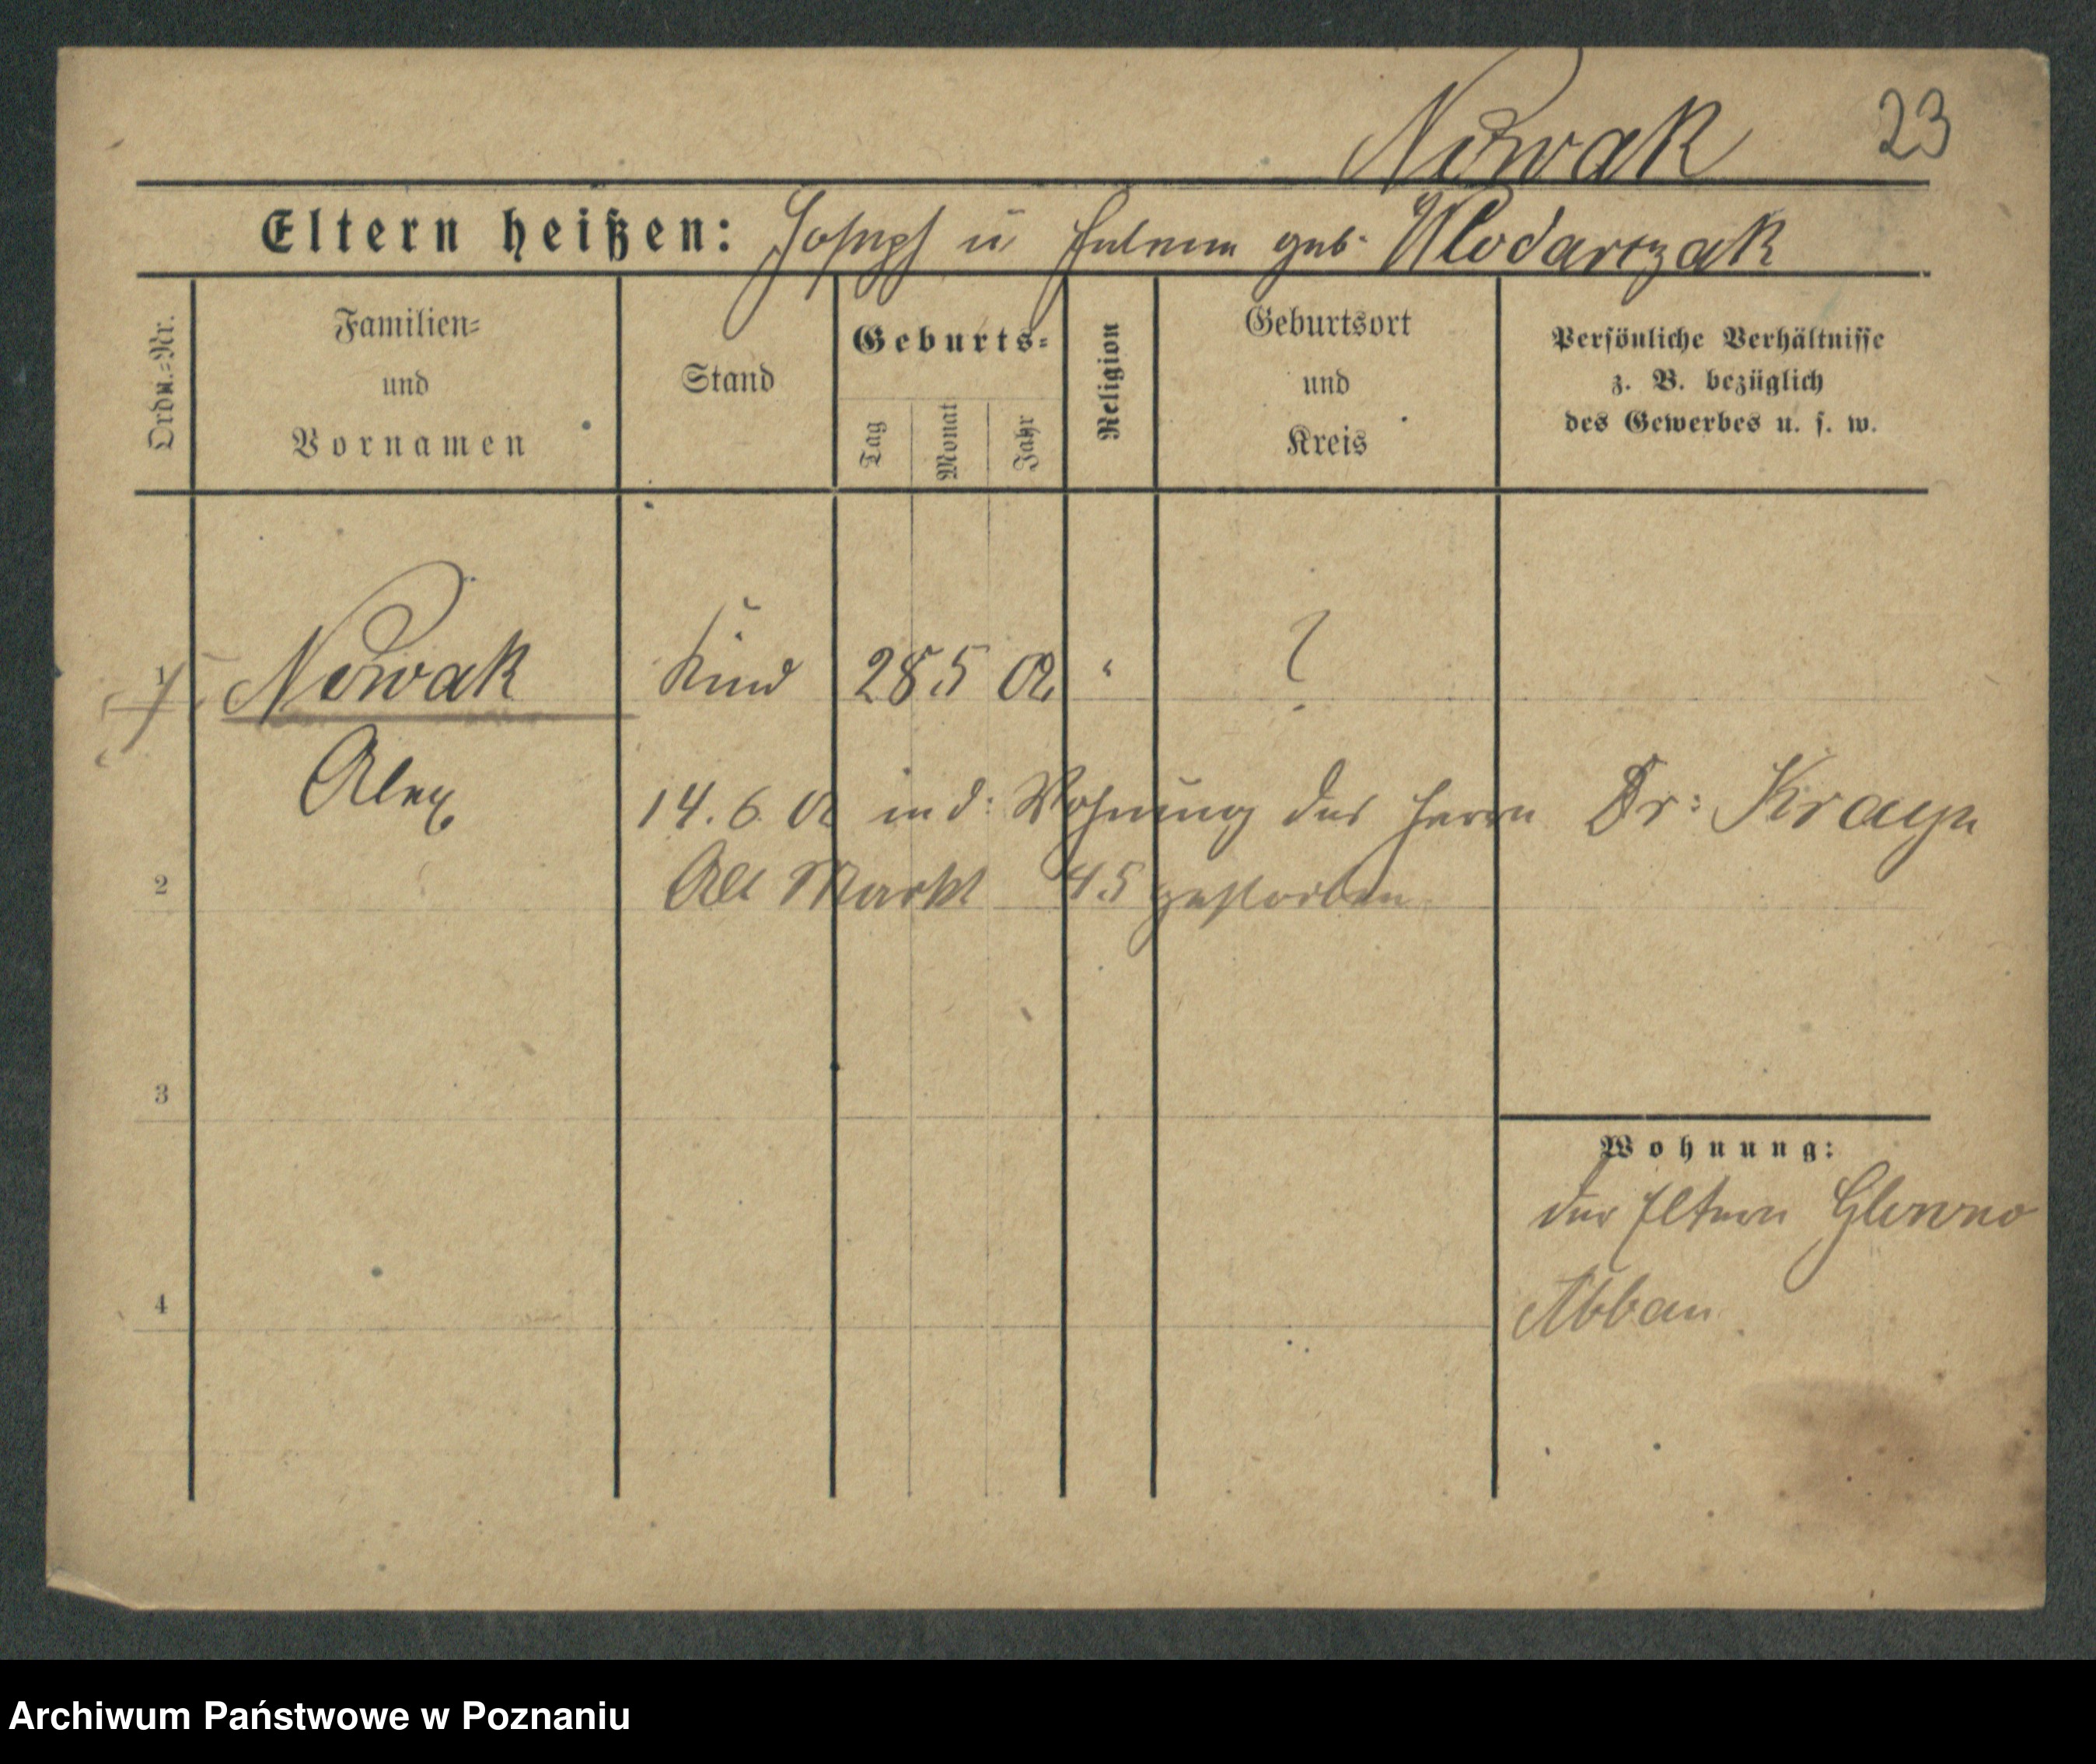 Nowak 23
Eltern heißen: Joseph u geb. Wlodarczak
Ordn.-Nr.
Familien-
und
Vornamen
Stand
Geburts-
Tag
Monat
Jahr
Religion
Geburtsort
und
Kreis
Persönliche Verhältnisse
z. B. bezüglich
des Gewerbes u. s. w.
1 Nowak Kind 28 5 ?
Alex
14. 6. in d: Wohnung des Herrn Dr: Krayn
2 Alt Markt 45 gestorben
3
Wohnung:
der Eltern Glowno
4 Abbau
Archiwum Państwowe w Poznaniu